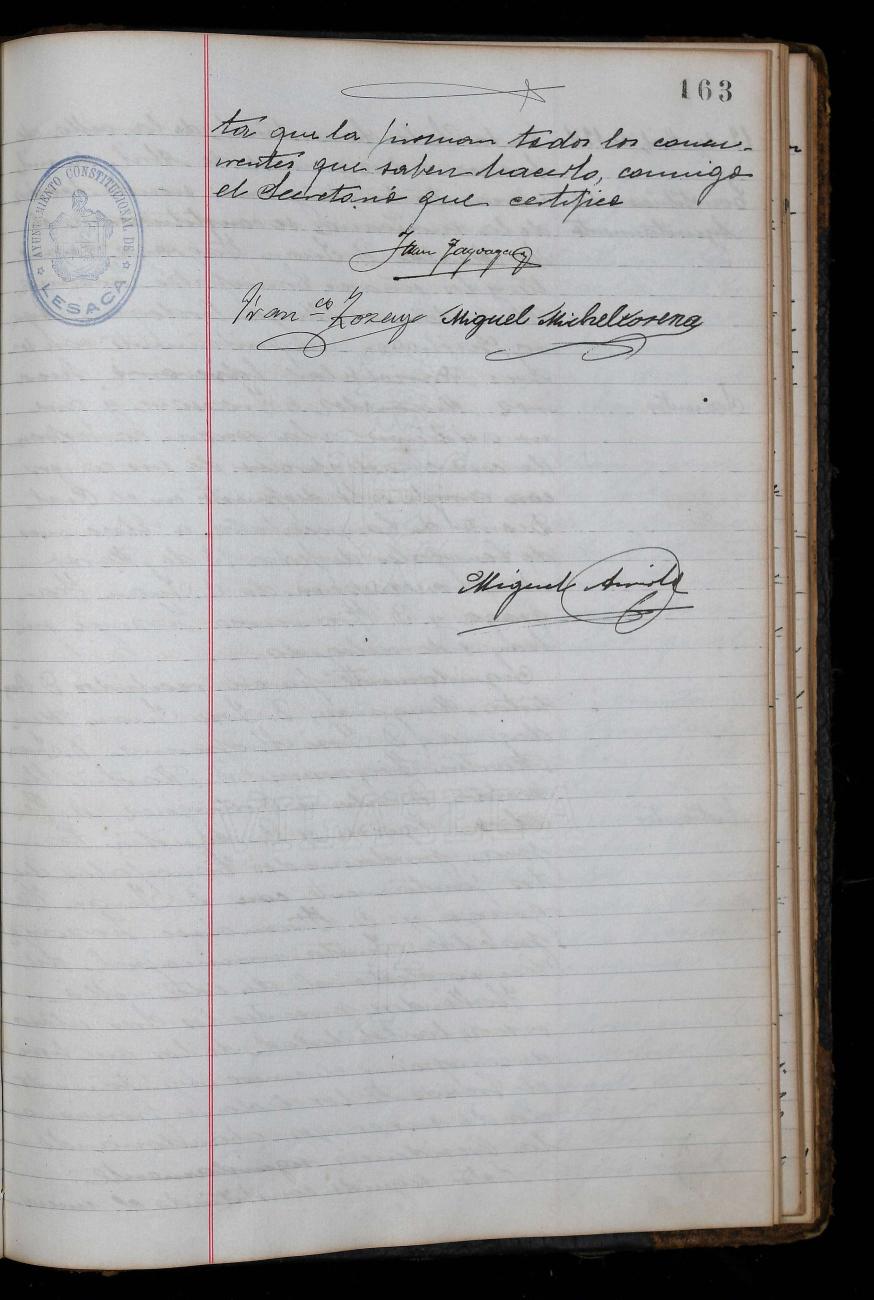 163
ta que la firman todos los concu-
rrentes que saben hacerlo, conmigo
el Secretario que certifico
AYUNTAMIENTO CONSTITUCIONAL DE
LESACA
Juan
Fran co Zozaya Miguel Micheltorena
Miguel